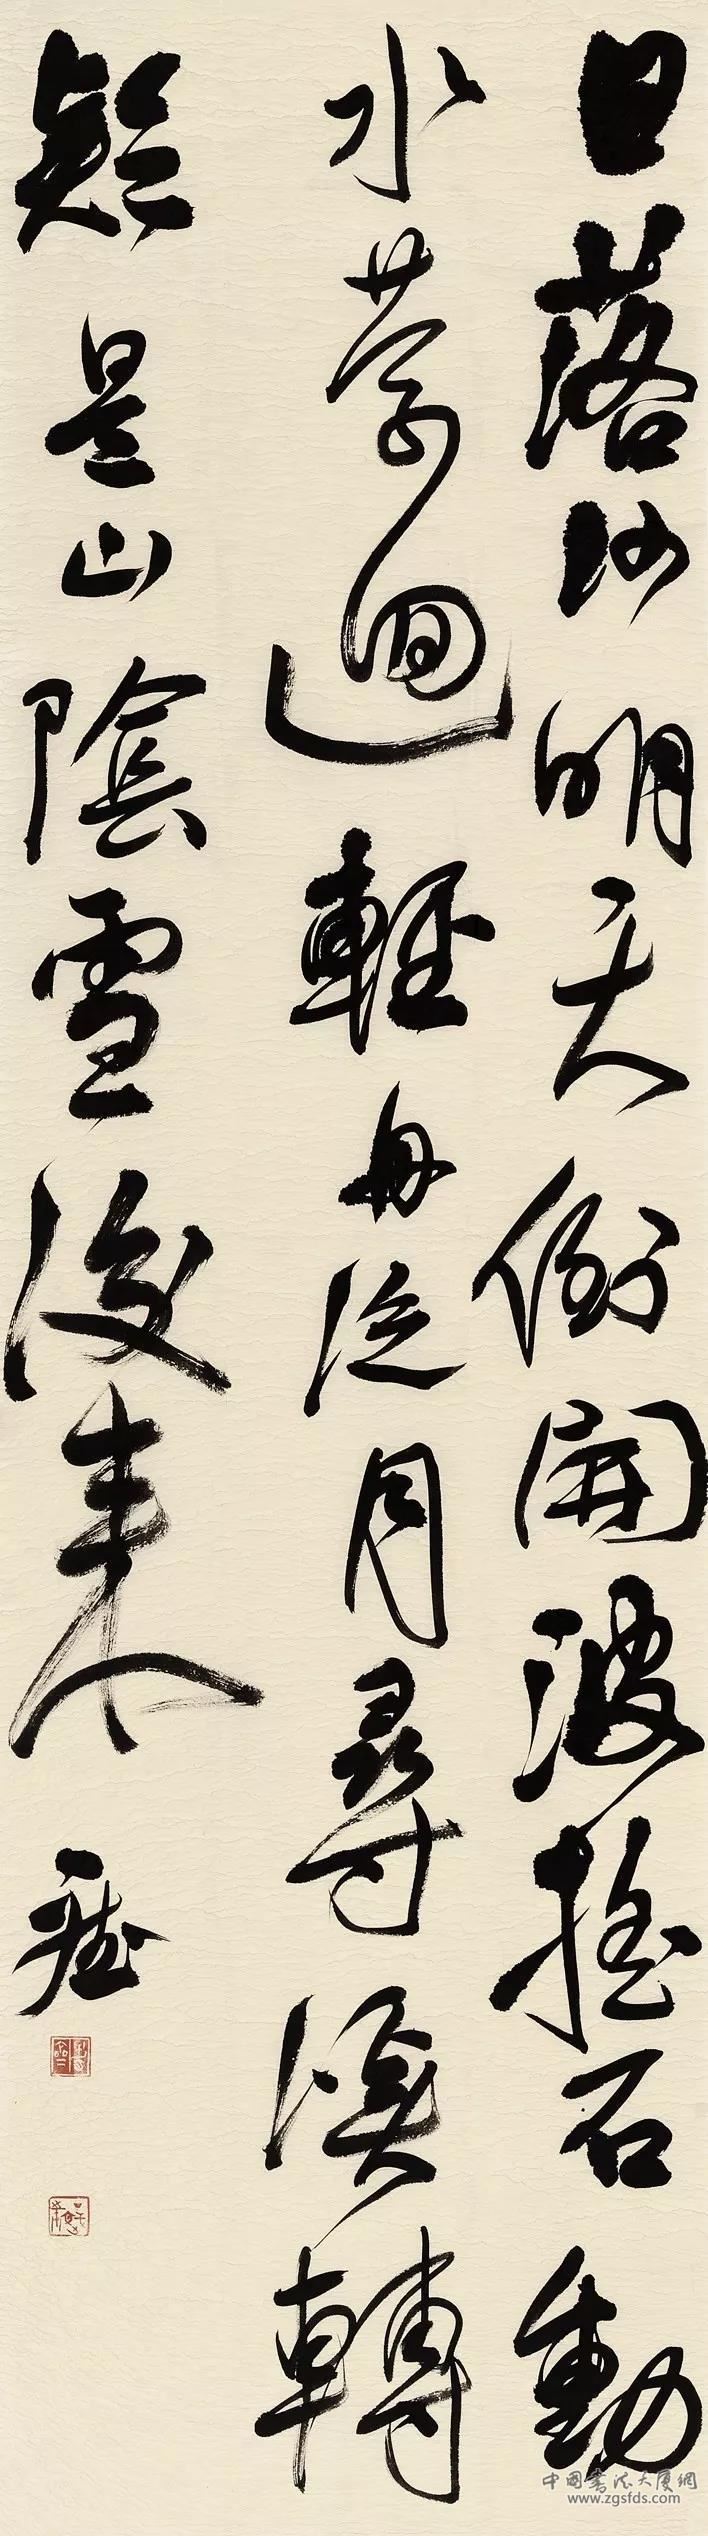 日落沙明天倒開波搖石動
水縈迴輕舟泛月尋溪轉
疑是山陰雪後來
中国書法大厦網
www.zgsfds.com